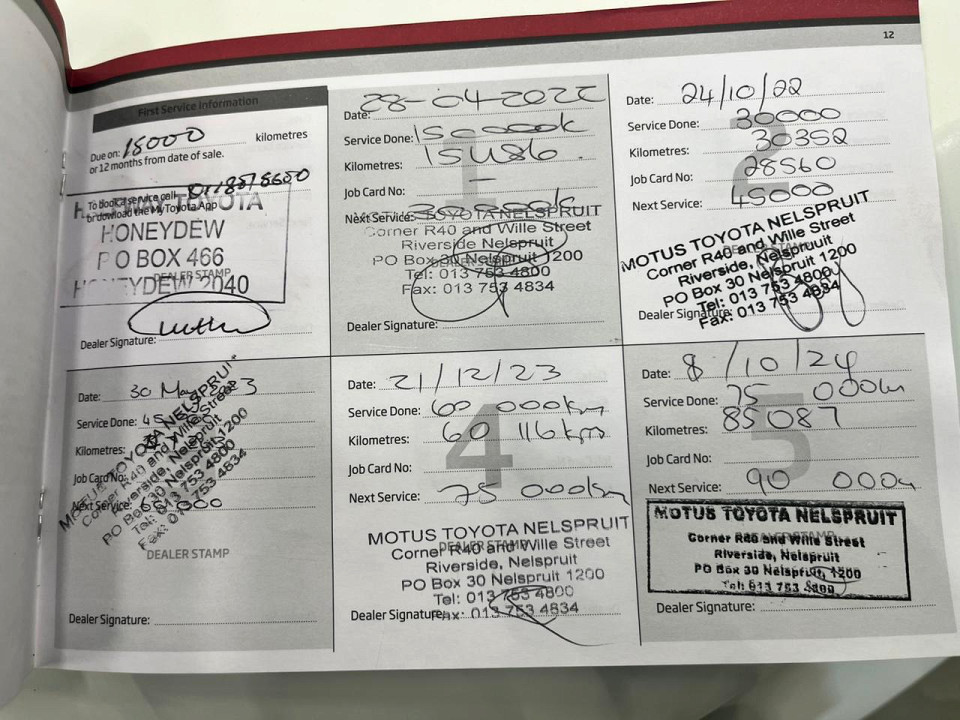 12
First Service Information
Due on: 15000 kilometres
or 12 months from date of sale.
To book a service call 0118015600
or download the MyToyota App
TOYOTA
HONEYDEW
P O BOX 466
HONEYDEW 2040
DEALER STAMP
Dealer Signature:
28-04-2022
Date:
Service Done: 15000k
Kilometres: 15486
Job Card No: –
Next Service: 30000k
TOYOTA NELSPRUIT
Corner R40 and Wille Street
Riverside Nelspruit
PO Box 30 Nelspruit 1200
Tel: 013 753 4800
Fax: 013 753 4834
Dealer Signature:
Date: 24/10/22
2
Service Done: 30000
Kilometres: 30352
Job Card No: 28560
Next Service: 45000
MOTUS TOYOTA NELSPRUIT
Corner R40 and Wille Street
Riverside, Nelspruit
PO Box 30 Nelspruit 1200
Tel: 013 753 4800
Fax: 013 753 4834
Dealer Signature:
Date: 30 May 2023
Service Done: 45
Kilometres:
Job Card No:
Next Service: 000
MOTUS TOYOTA NELSPRUIT
Corner R40 and Wille Street
Riverside, Nelspruit
PO Box 30 Nelspruit 1200
Tel: 013 753 4800
Fax: 013 753 4834
DEALER STAMP
Dealer Signature:
Date: 21/12/23
Service Done: 60 000km
4
Kilometres: 60 116kms
Job Card No:
Next Service: 75 000km
MOTUS TOYOTA NELSPRUIT
DEALER STAMP
Corner R40 and Wille Street
Riverside, Nelspruit
PO Box 30 Nelspruit 1200
Tel: 013 753 4800
Dealer Signature: Fax: 013 753 4834
Date: 8/10/24
Service Done: 75 000km
5
Kilometres: 85087
Job Card No:
Next Service: 90 000km
MOTUS TOYOTA NELSPRUIT
Corner R40 and Wille Street
Riverside, Nelspruit
PO Box 30 Nelspruit, 1200
Tel: 013 753 4800
Dealer Signature: